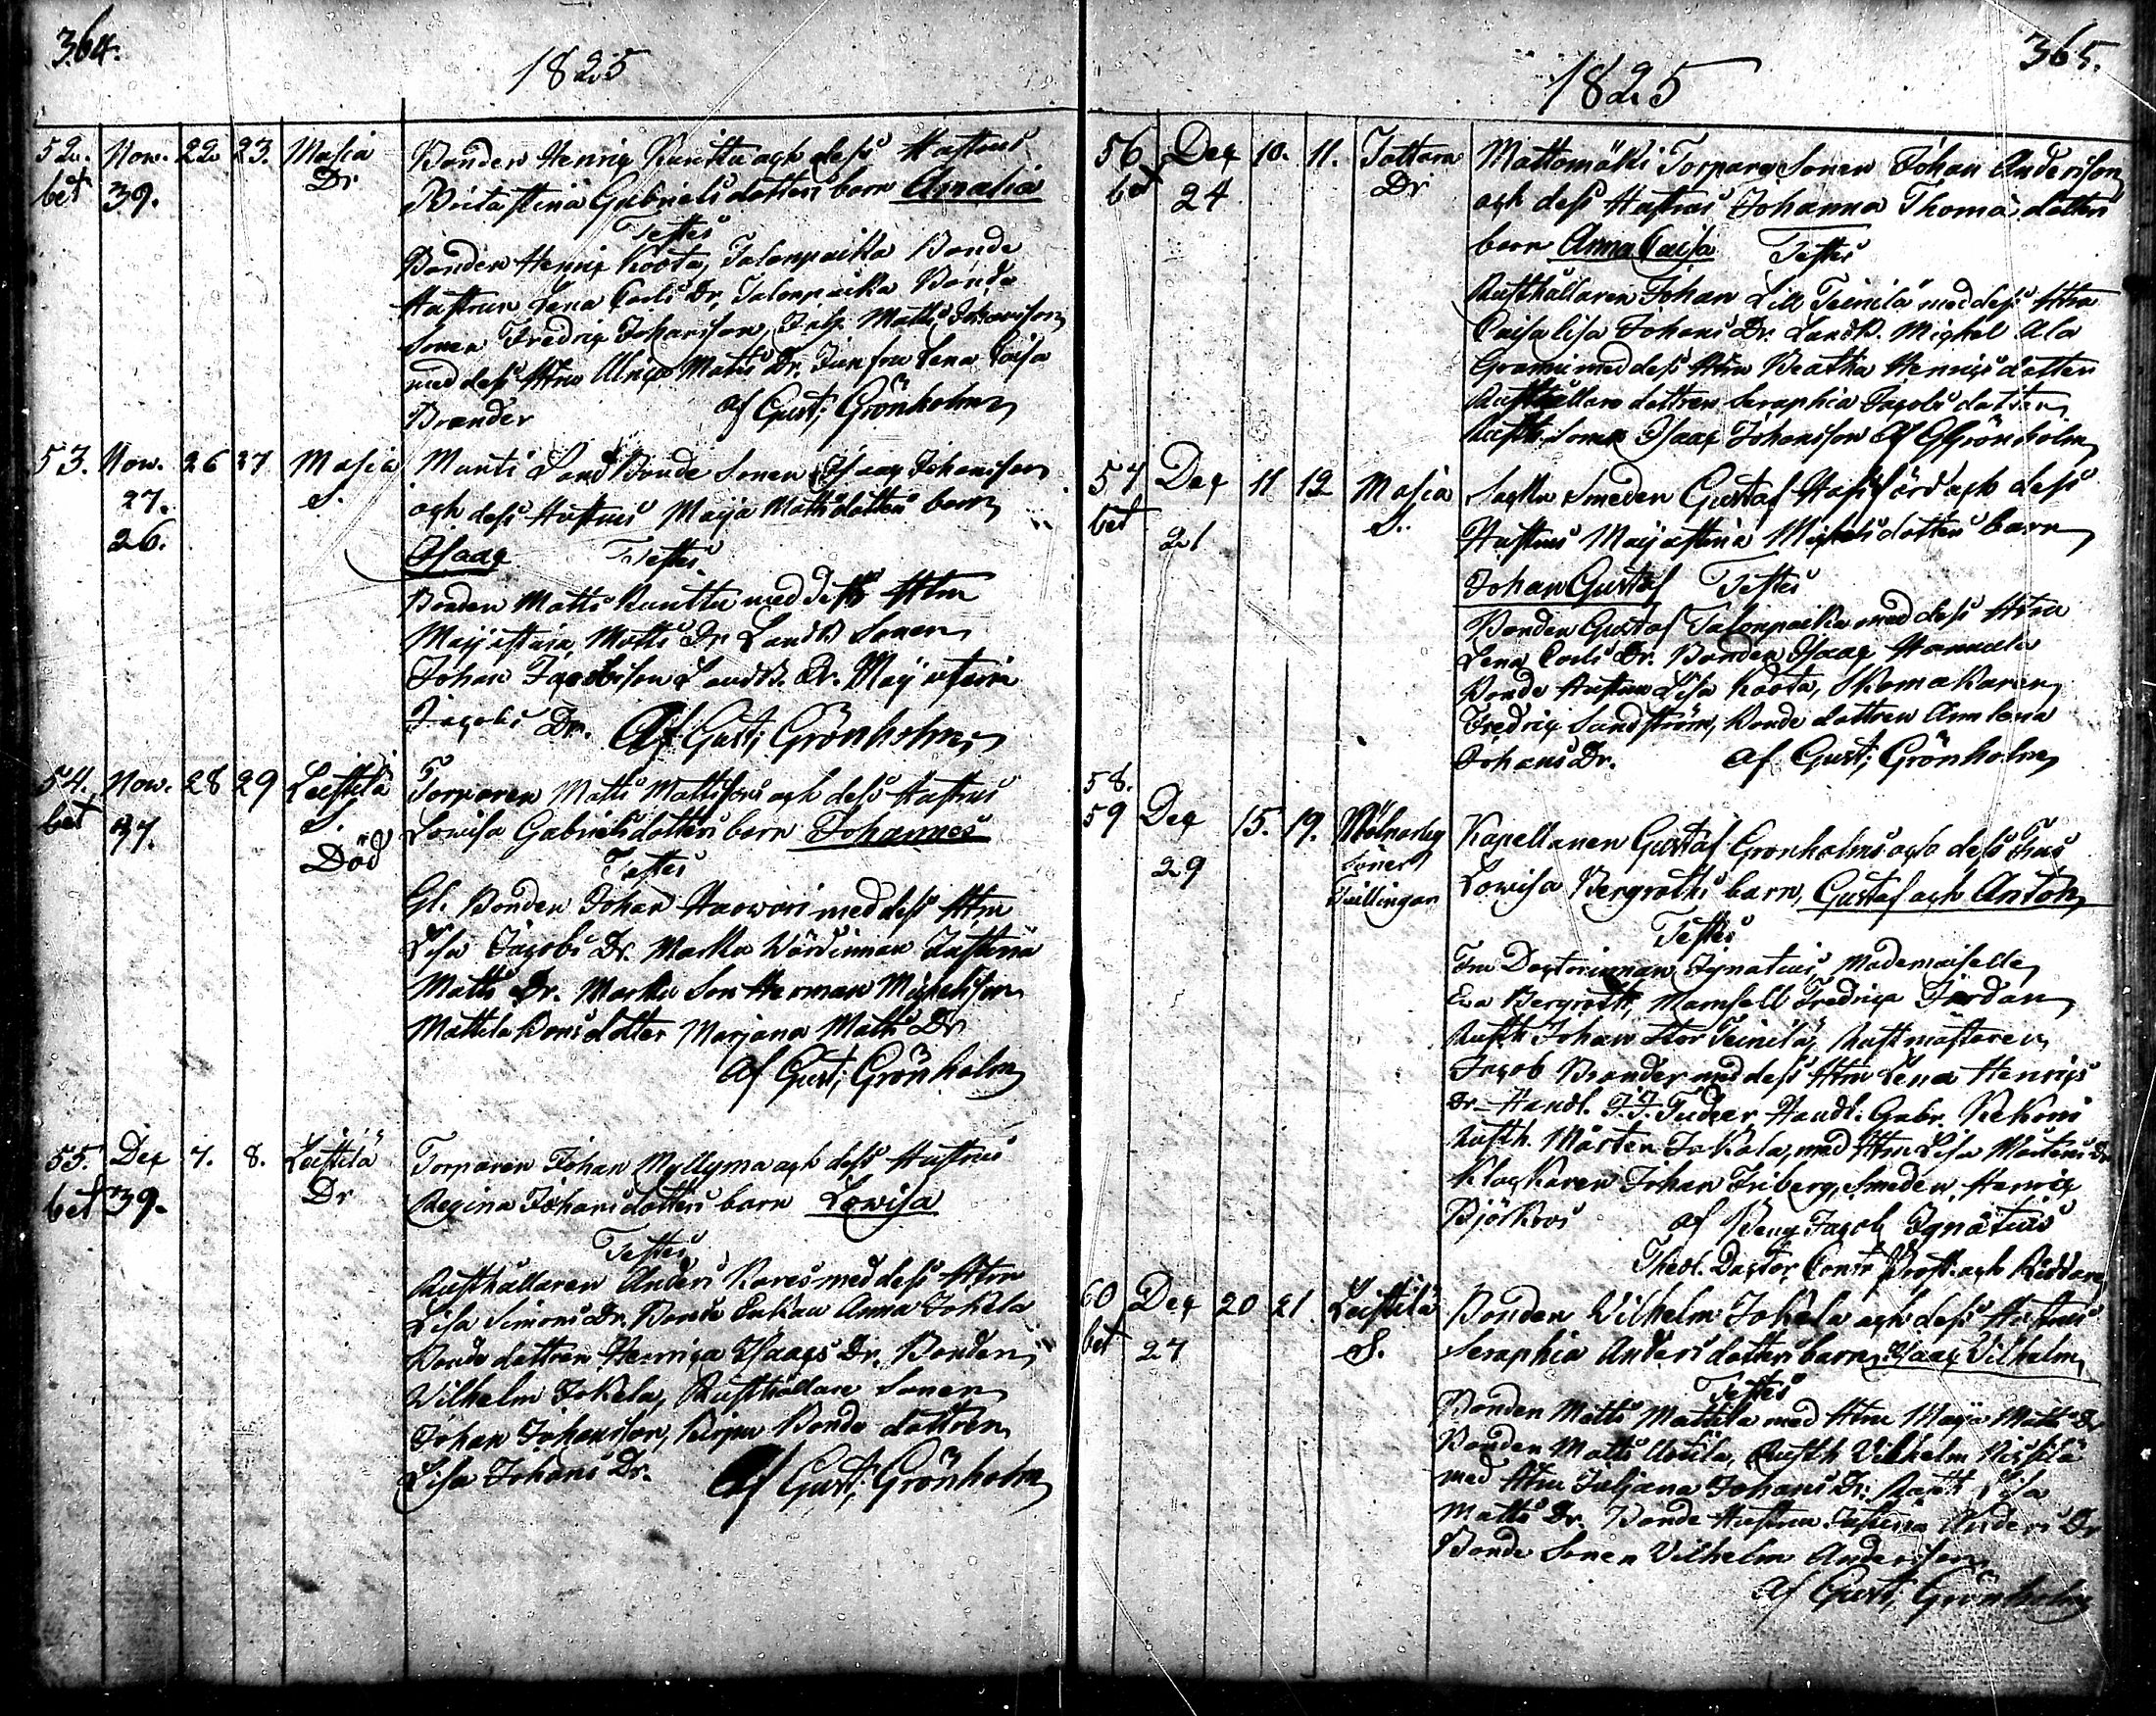 364.
1825
52. Nov. 22 23. Masia Bonden Henric Kunttu och dess Hustrus
bet 39. Dr Britastina Gabrielsdotters barn Amalia
Testes
Bonden Henric Koota, Talonpoika Bonde
Hustrun Lena Carls Dr, Talonpoika Bonde
Sonen Fredric Johansson, Matts Johansson
med dess Hru Ulrica Matts Dr. Junfru Lena Caisa
Brander af Gust; Grönholm
53. Nov. 26 27 Masia Land Bonde Sonen Isaac Johansson
27. S. och dess Hustrus Maja Mattsdotters barn
26.
Isaac Testes
Bonden Matts Kunttu med dess Hru
Majastina Matts Dr. LandB Sonen
Johan Jacobsson LandB. Dr. Maja
Jacobs Dr. Af Gust; Grönholm
54. Nov. 28 29 Leistilä Torparen Matts Mattssons och dess Hustrus
bet 37. S. Lowisa Gabrielsdotters barn Johannes
Död Testes
Gl. Bonden Johan med dess Hru
Lisa Jacobs Dr. Wärdinnan Justina
Matts Dr. Son Herman Michelsson
Mattila Bonsdotter Marjana Matts Dr
af Gust; Grönholm
55. Dec 7. 8. Leistilä Torparen Johan Myllymaa och dess Hustrus
bet 39. Dr Regina Johansdotters barn Lowisa
Testes
Rusthållaren Anders Kares med dess Hru
Lisa Simons Dr. Bonde Enkan Anna Jokela
Bonde dottren Henrica Isaacs Dr. Bonden
Wilhelm Jokela, Rusthållare Sonen
Johan Johansson, Bonde dottren
Lisa Johans Dr. Af Gust; Grönholm
365.
1825
56 Dec 10. 11. Tattara Mattomäki Torpare Sonen Johan Andersson
bet 24 Dr och dess Hustrus Johanna Thomas dotters
barn Anna Caisa Testes
Rusthållaren Johan Lill Teinilä med dess Hru
Caisa lisa Johans Dr. LandB. Michel Ala
med dess Hru Beatha Henrics dotter
Rusthållare dottren Seraphia Jacobs dotter
Rusth. Sonen Isaac Johansson af GGrönholm
57 Dec 11 12 Masia Sockn Smeden Gustaf och dess
bet 21 S. Hustrus Majastina Michelsdotters barn
Johan Gustaf Testes
Bonden Gustaf Talonpoika med dess Hru
Lena Carls Dr. Bonden Isaac Hannula
Bonde Hustrun Lisa Koota, Skomakaren
Fredric Sundström, Bonde dottren Annlena
Johans Dr. af Gust; Grönholm
58.
59 Dec 15. 19. Kapellanen Gustaf Grönholms och dess Frus
29 Söner Lowisa Bergroths barn, Gustaf och Anton
Tvillingar
Testes
Fru Doctorinnan Ignatius, Mademoiselle
Eva Bergroth, Mamsell Fredrica Jordan
Rusth Johan Stor Teinilä, Rustmästaren
Jacob Brander med dess Hru Lena Henrics
Dr. Handl. J.J. Handl. Gabr. Kekoni
Rusth. Mårten Jokala, med Hru Lisa Mårtens Dr
Klockaren Johan Friberg, Smeden Henric
Björkros af Beng Jacob Ignatius
Theol. Doctor Contr Prost och Riddare
60 Dec 20 21. Leistilä Bonden Wilhelm Jokela och dess Hustrus
bet 27 S. Seraphia Anders dotters barn Isaac Wilhelm
Testes
Bonden Matts Mattila med Hru Maja Matts Dr
Bonden Matts Uotila, Rusth Wilhelm
med Hru Juljana Johans Dr. Lisa
Matts Dr. Bonde Hustrun Justina Anders Dr
Bonde Sonen Wilhelm Andersson
af Gust; Grönholm